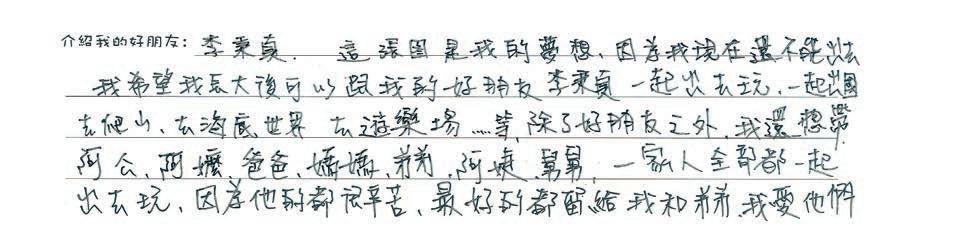 介紹我的好朋友：李秉真. 這張圖是我的夢想、因為我現在還不能出去
我希望我長大後可以跟我的好朋友李秉真一起出去玩、一起出國
去爬山、去海底世界 去遊樂場……等，除了好朋友之外、我還想帶
阿公、阿嬤、爸爸、媽媽、弟弟、阿姨、舅舅、一家人全部都一起
出去玩、因為他們都很辛苦、最好的都留給我和弟弟、我愛他們